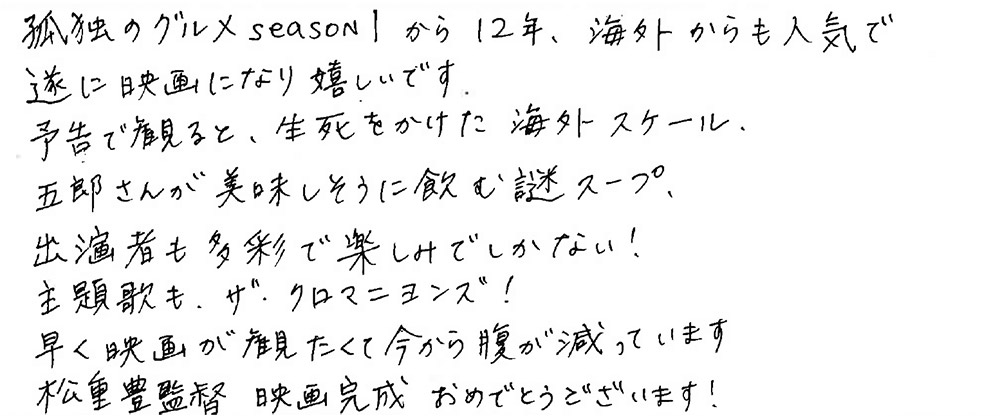 孤独のグルメseason1から12年、海外からも人気で
遂に映画になり嬉しいです.
予告で観ると、生死をかけた海外スケール.
五郎さんが美味しそうに飲む謎スープ.
出演者も多彩で楽しみでしかない!
主題歌も.ザ・クロマニヨンズ!
早く映画が観たくて今から腹が減っています
松重豊監督 映画完成 おめでとうございます!